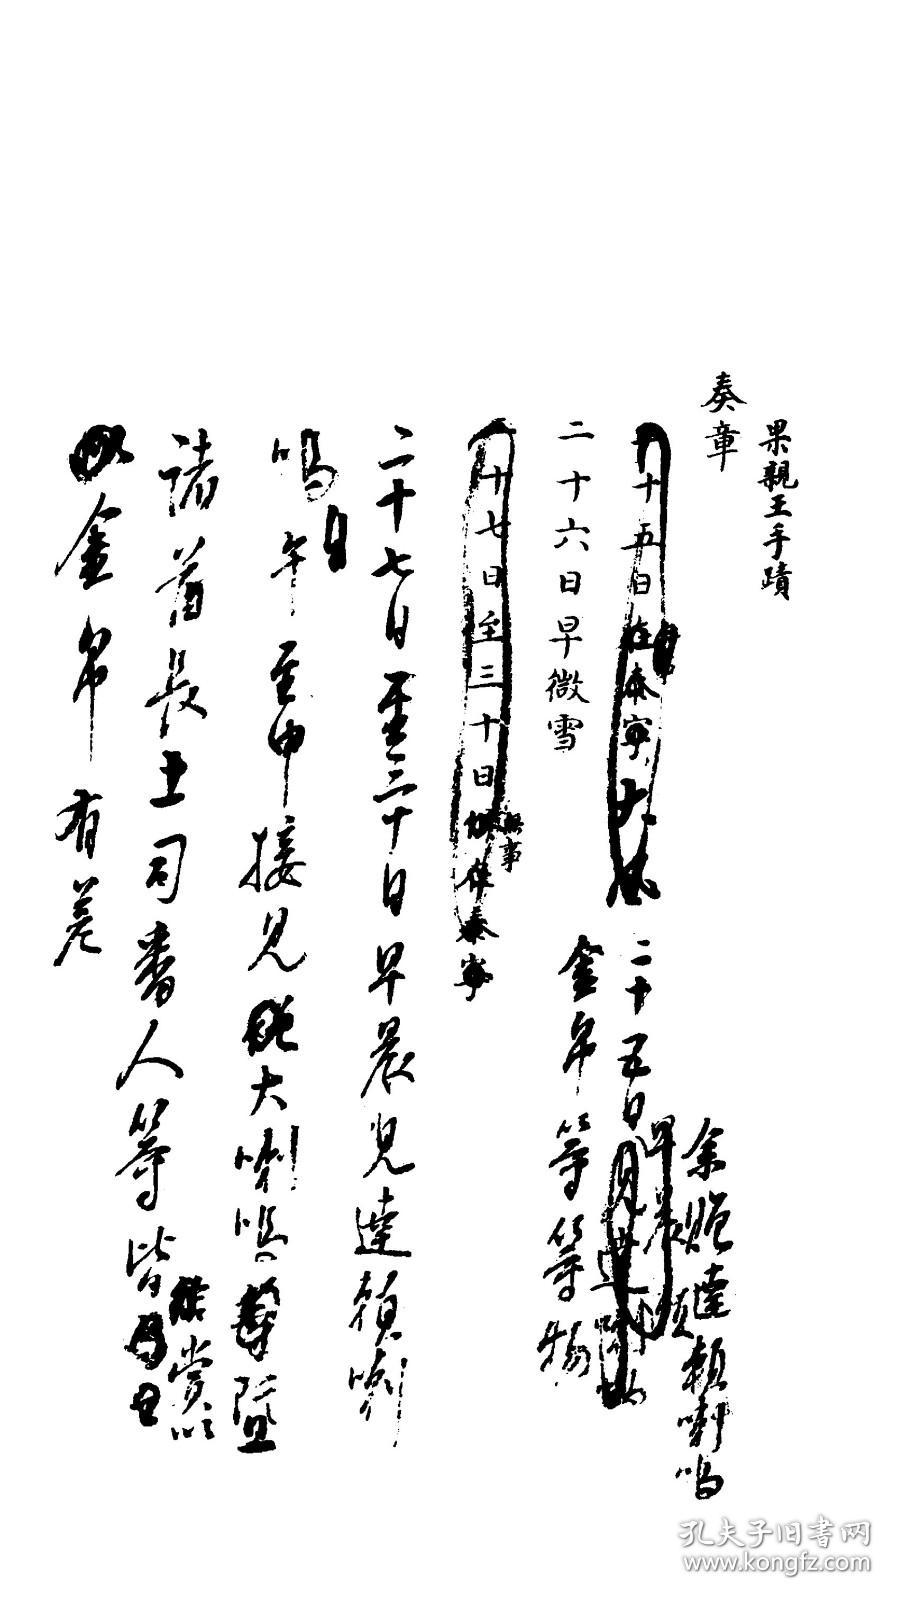 果親王手蹟
奏章
十五日在泰寧大風
二十五日
早晨
余賜達賴喇嗎
金帛等等物
二十六日早微雪
十七日至三十日
無事
在泰寧
二十七日至三十日早晨見達賴喇
嗎午至申接見
大喇嗎暨
諸酋長土司番人等皆
賞以
金帛有差
孔夫子旧书网
www.kongfz.com